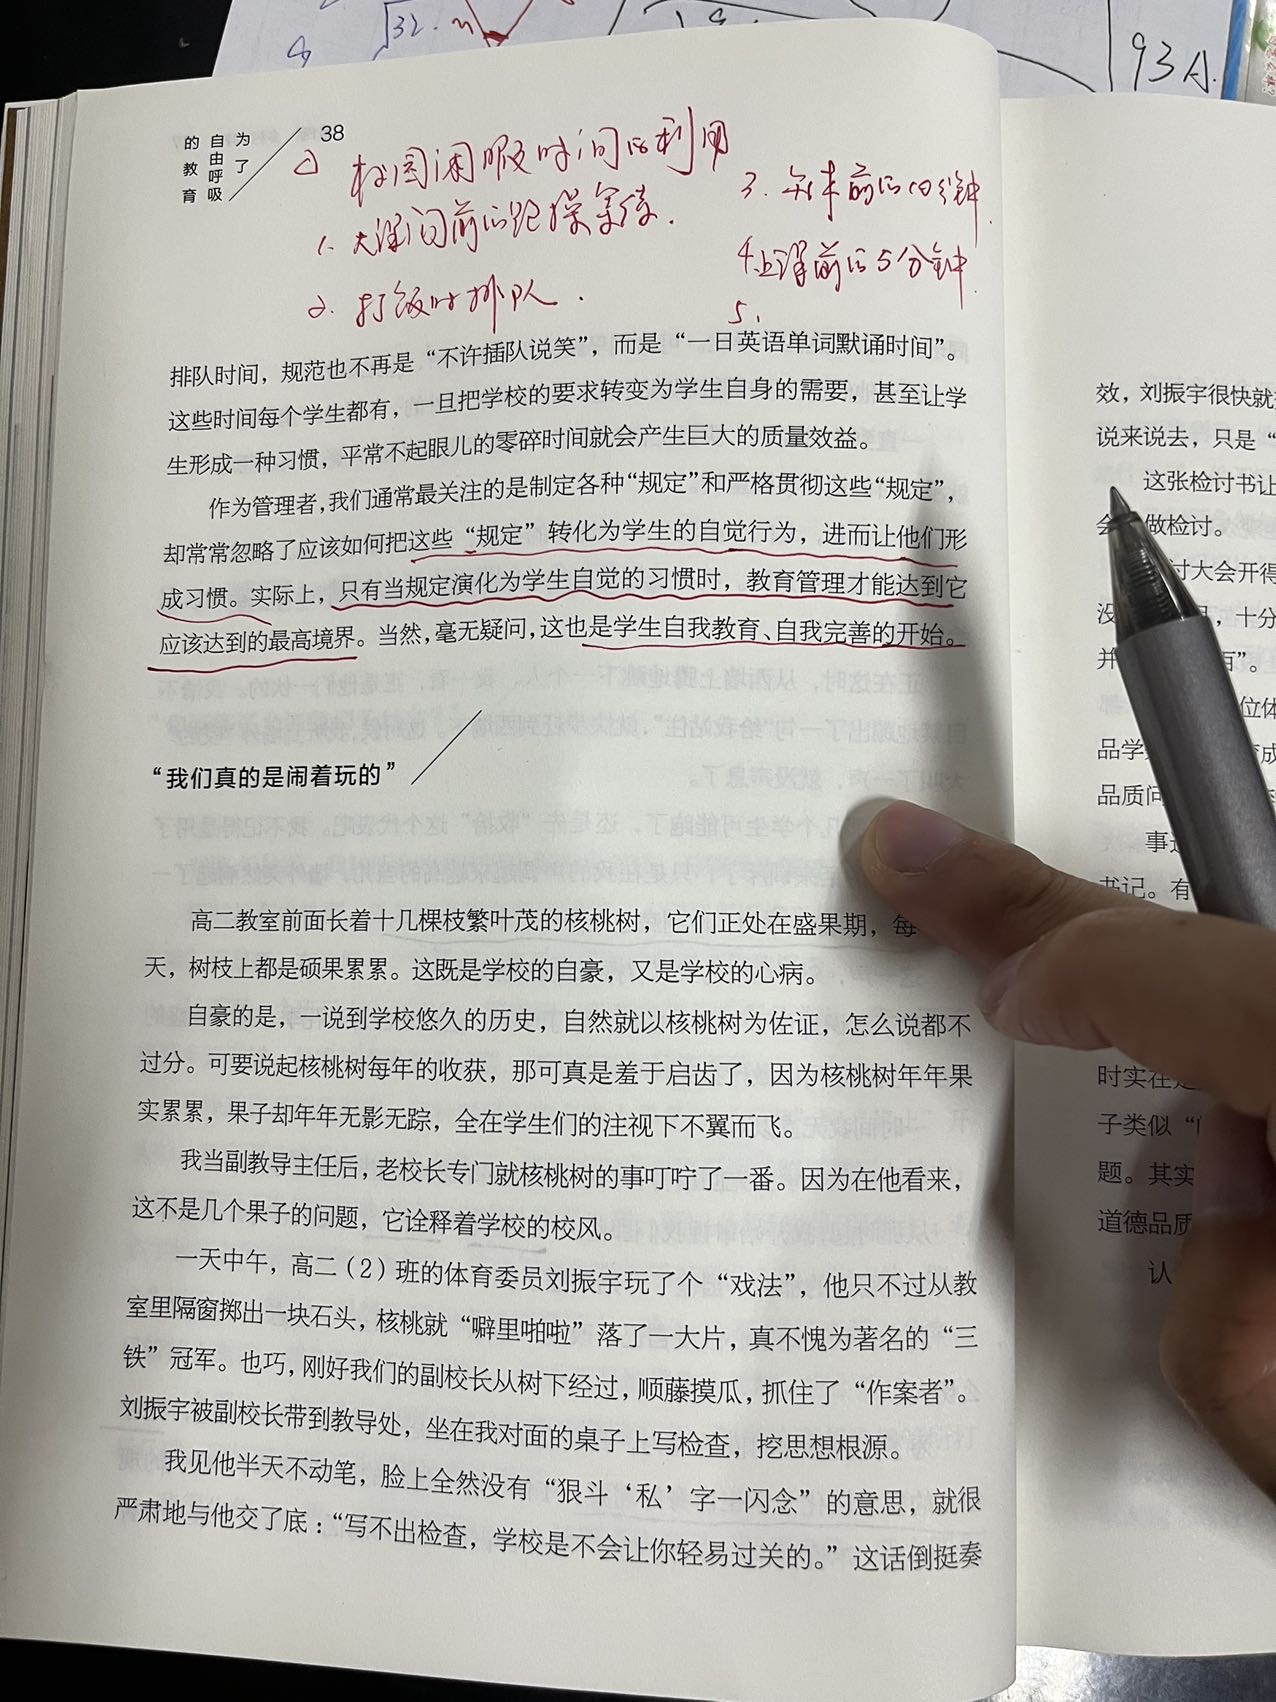 √32
93A.
为了
自由呼吸
的教育
38
② 校园闲暇时间的利用
1. 大课间前后跑操等候.
2. 打饭时排队.
前后10分钟.
4.上课前后5分钟.
5.
排队时间，规范也不再是“不许插队说笑”，而是“一日英语单词默诵时间”。
这些时间每个学生都有，一旦把学校的要求转变为学生自身的需要，甚至让学
生形成一种习惯，平常不起眼儿的零碎时间就会产生巨大的质量效益。
作为管理者，我们通常最关注的是制定各种“规定”和严格贯彻这些“规定”，
却常常忽略了应该如何把这些“规定”转化为学生的自觉行为，进而让他们形
成习惯。实际上，只有当规定演化为学生自觉的习惯时，教育管理才能达到它
应该达到的最高境界。当然，毫无疑问，这也是学生自我教育、自我完善的开始。
“我们真的是闹着玩的”
高二教室前面长着十几棵枝繁叶茂的核桃树，它们正处在盛果期，每
天，树枝上都是硕果累累。这既是学校的自豪，又是学校的心病。
自豪的是，一说到学校悠久的历史，自然就以核桃树为佐证，怎么说都不
过分。可要说起核桃树每年的收获，那可真是羞于启齿了，因为核桃树年年果
实累累，果子却年年无影无踪，全在学生们的注视下不翼而飞。
我当副教导主任后，老校长专门就核桃树的事叮咛了一番。因为在他看来，
这不是几个果子的问题，它诠释着学校的校风。
一天中午，高二（2）班的体育委员刘振宇玩了个“戏法”，他只不过从教
室里隔窗掷出一块石头，核桃就“噼里啪啦”落了一大片，真不愧为著名的“三
铁”冠军。也巧，刚好我们的副校长从树下经过，顺藤摸瓜，抓住了“作案者”。
刘振宇被副校长带到教导处，坐在我对面的桌子上写检查，挖思想根源。
我见他半天不动笔，脸上全然没有“狠斗‘私’字一闪念”的意思，就很
严肃地与他交了底：“写不出检查，学校是不会让你轻易过关的。”这话倒挺奏
效，刘振宇很快就
说来说去，只是“
这张检讨书让
会 做检讨。
讨大会开得
没 ，十分
并 百”。
位体
品学 成
品质问
事
书记。有
时实在是
子类似“
题。其实
道德品质
认